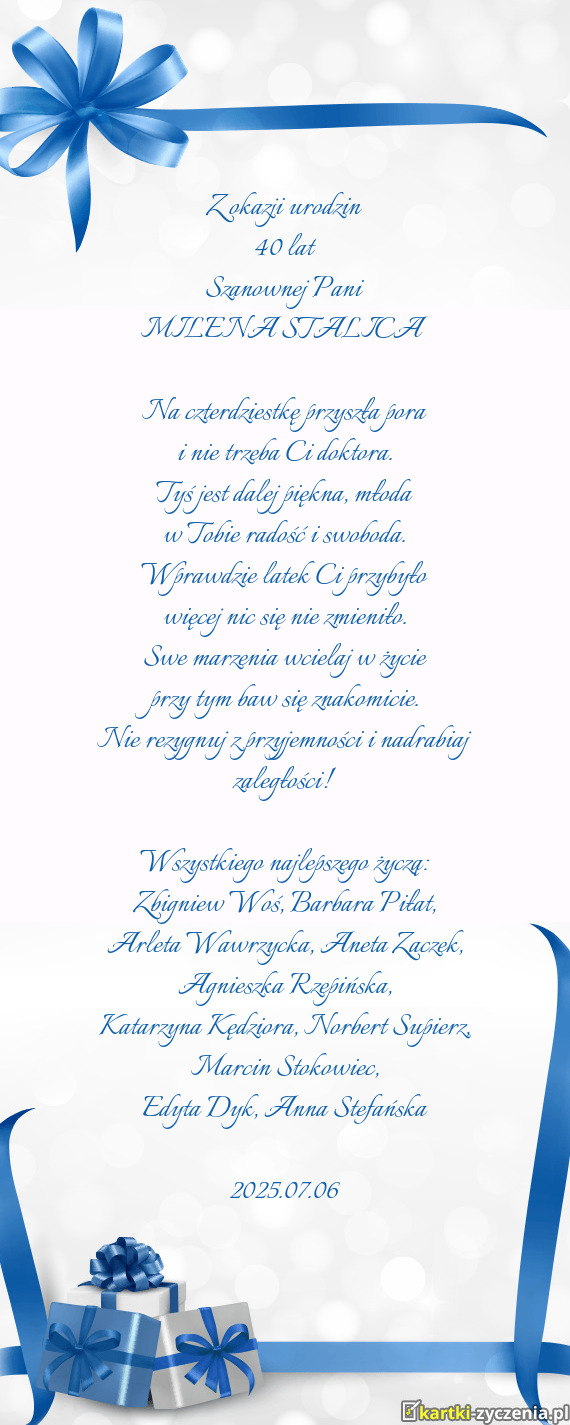 Z okazji urodzin
40 lat
Szanownej Pani
MILENA STALICA
Na czterdziestkę przyszła pora
i nie trzeba Ci doktora.
Tyś jest dalej piękna, młoda
w Tobie radość i swoboda.
Wprawdzie latek Ci przybyło
więcej nic się nie zmieniło.
Swe marzenia wcielaj w życie
przy tym baw się znakomicie.
Nie rezygnuj z przyjemności i nadrabiaj
zaległości!
Wszystkiego najlepszego życzą:
Zbigniew Woś, Barbara Piłat,
Arleta Wawrzycka, Aneta Zaczek,
Agnieszka Rzępińska,
Katarzyna Kędziora, Norbert Supierz,
Marcin Stokowiec,
Edyta Dyk, Anna Stefańska
2025.07.06
kartki-zyczenia.pl